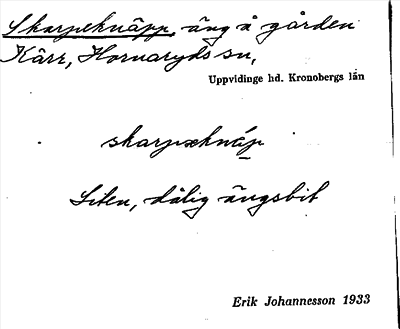 Skarpeknäpp, äng å gården
Kärr, Hornaryds sn,
Uppvidinge hd. Kronobergs län
skarpæknæ̂p
Liten, dålig ängsbit
Erik Johannesson 1933